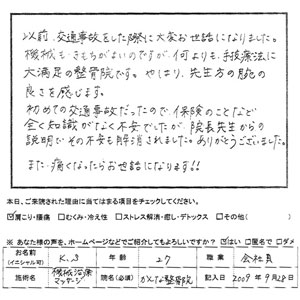 以前、交通事故をした際に大変お世話になりました。
機械もきもちがいいのですが、何よりも、手技療法に
大満足の整骨院です。やはり、先生方の腕の
良さを感じます。
初めての交通事故だったので、保険のことなど
全く知識がなく不安でしたが、院長先生からの
説明でその不安も解消されました。ありがとうございました。
また痛くなったらお世話になります!!
本日、ご来院された理由に当てはまる項目をチェックしてください。
☑肩こり・腰痛 □むくみ・冷え性 □ストレス解消・癒し・デトックス □その他( )
※ あなた様の声を、ホームページなどでご紹介してもよろしいですか? ☑はい □匿名で □ダメ
お名前(イニシャル可) K.S 年齢 27 職業 会社員
施術名 機械治療 マッサージ 院名(必須) かんな整骨院 記入日 2009年9月28日